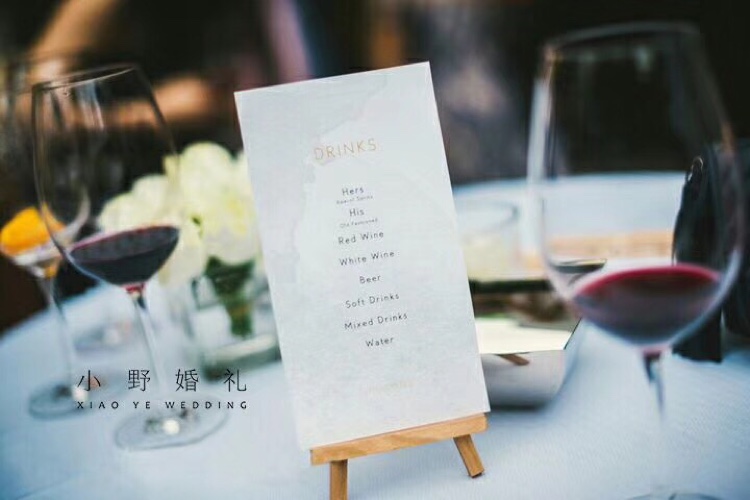 DRINKS
Hers
His
Old Fashioned
Red Wine
White Wine
Beer
Soft Drinks
Mixed Drinks
Water
小野婚礼
XIAO YE WEDDING